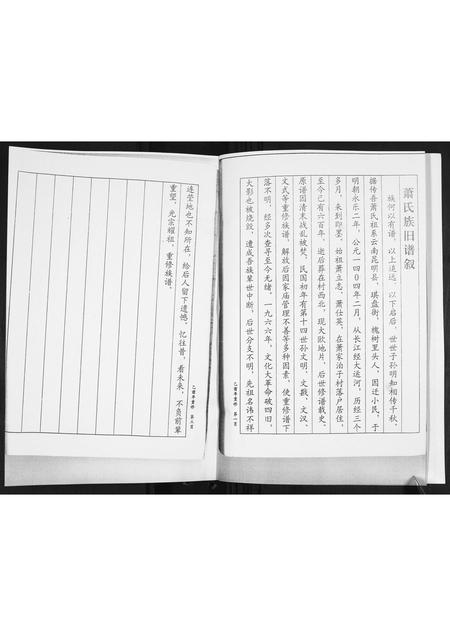 萧氏族旧谱叙
族何以有谱，以上追远，以下启后，世世子孙明知相传千秋，
据传吾萧氏祖系云南昆明县，琪盘街，槐树里头人，因迁小民，于
明朝永乐二年，公元一四0四年二月，从长江经大运河，历经三个
多月，来到即墨，始祖萧立志，萧仕英，在萧家泊子村落户居住，
至今已有六百年，逝后葬在村西北，现大欧地片，后世修谱载史，
原谱因清末战乱被焚，民国初年有第十四世孙文明，文戬，文汉，
文式等重修族谱，解放后因家庙管理不善等多种因素，使重修谱下
落不明，经多次查寻至今无绪，一九六六年，文化大革命破四旧，
大影也被烧毁，遭成吾族辈世中断，后世分支不明，先祖名讳不祥
乙酉年重修 第一页
连茔地也不知所在，给后人留下遗憾，忆往昔，看未来，不负前辈
重望，光宗耀祖，重修族谱。
乙酉年重修 第三页